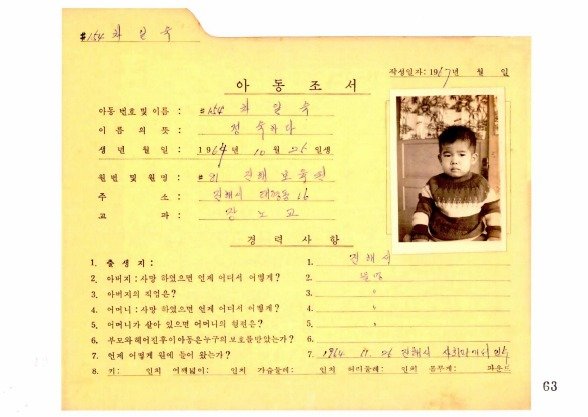 #154 최 일 숙
작성일자: 1967년 월 일
아 동 조 서
아동 번호 및 이름 : #154 최 일 숙
이 름 의 뜻 : 정숙하다
생 년 월 일 : 1964년 10월 26일생
원번 및 원명 : #21 진해 보육원
주 소 : 진해시 태평동 16
교 파 : 장 노 교
경 력 사 항
1. 출 생 지 : 1. 진해시
2. 아버지 : 사망 하였으면 언제 어디서 어떻게? 2. 불명
3. 아버지의 직업은? 3. 〃
4. 어머니 : 사망 하였으면 언제 어디서 어떻게? 4. 〃
5. 어머니가 살아 있으면 어머니의 형편은? 5. 〃
6. 부모와 헤어진후이아동은누구의보호를받았는가? 6.
7. 언제 어떻게 원에 들어 왔는가? 7. 1964. 11. 26 진해시 사회과에서 인수
8. 키: 인치 어깨넓이: 인치 가슴둘레: 인치 허리둘레: 인치 몸무게: 파운드
63